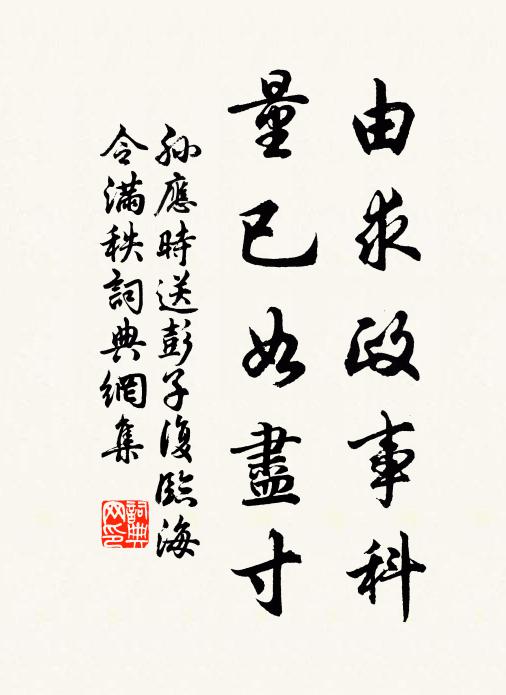 由求政事科
量已如盡寸
孫應時送彭子復臨海
令滿秩詞典網集
詞典网印